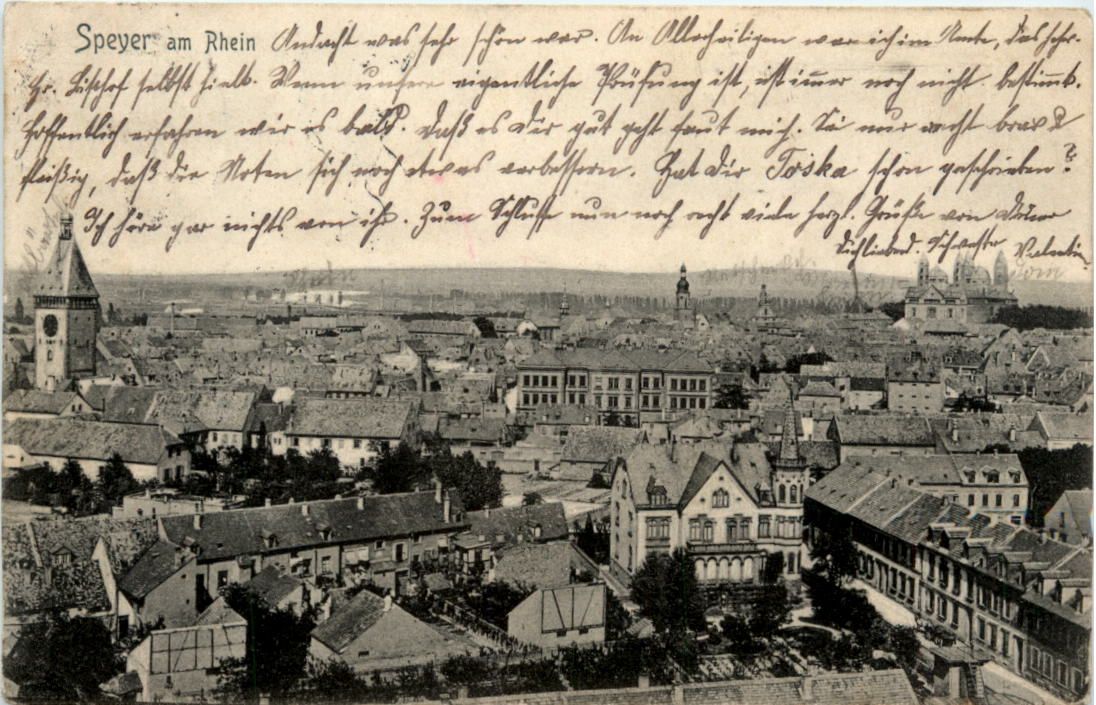 Speyer am Rhein Andacht was sehr schön war. An Allerheiligen war ich im Amte, das hchw.
Hr. Bischof selbst hielt. Wenn unsere eigentliche Prüfung ist, ist immer noch nicht bestimmt.
Hoffentlich erfahren wir es bald. Daß es Dir gut geht freut mich. Sei nur recht brav &
fleißig, daß die Noten sich noch etwas verbessern. Hat Dir Toska schon geschrieben?
Ich höre gar nichts von ihr. Zum Schlusse nun noch recht viele herzl. Grüße von Deiner
Dichliebend. Schwester Valentin
Rhein
Dom